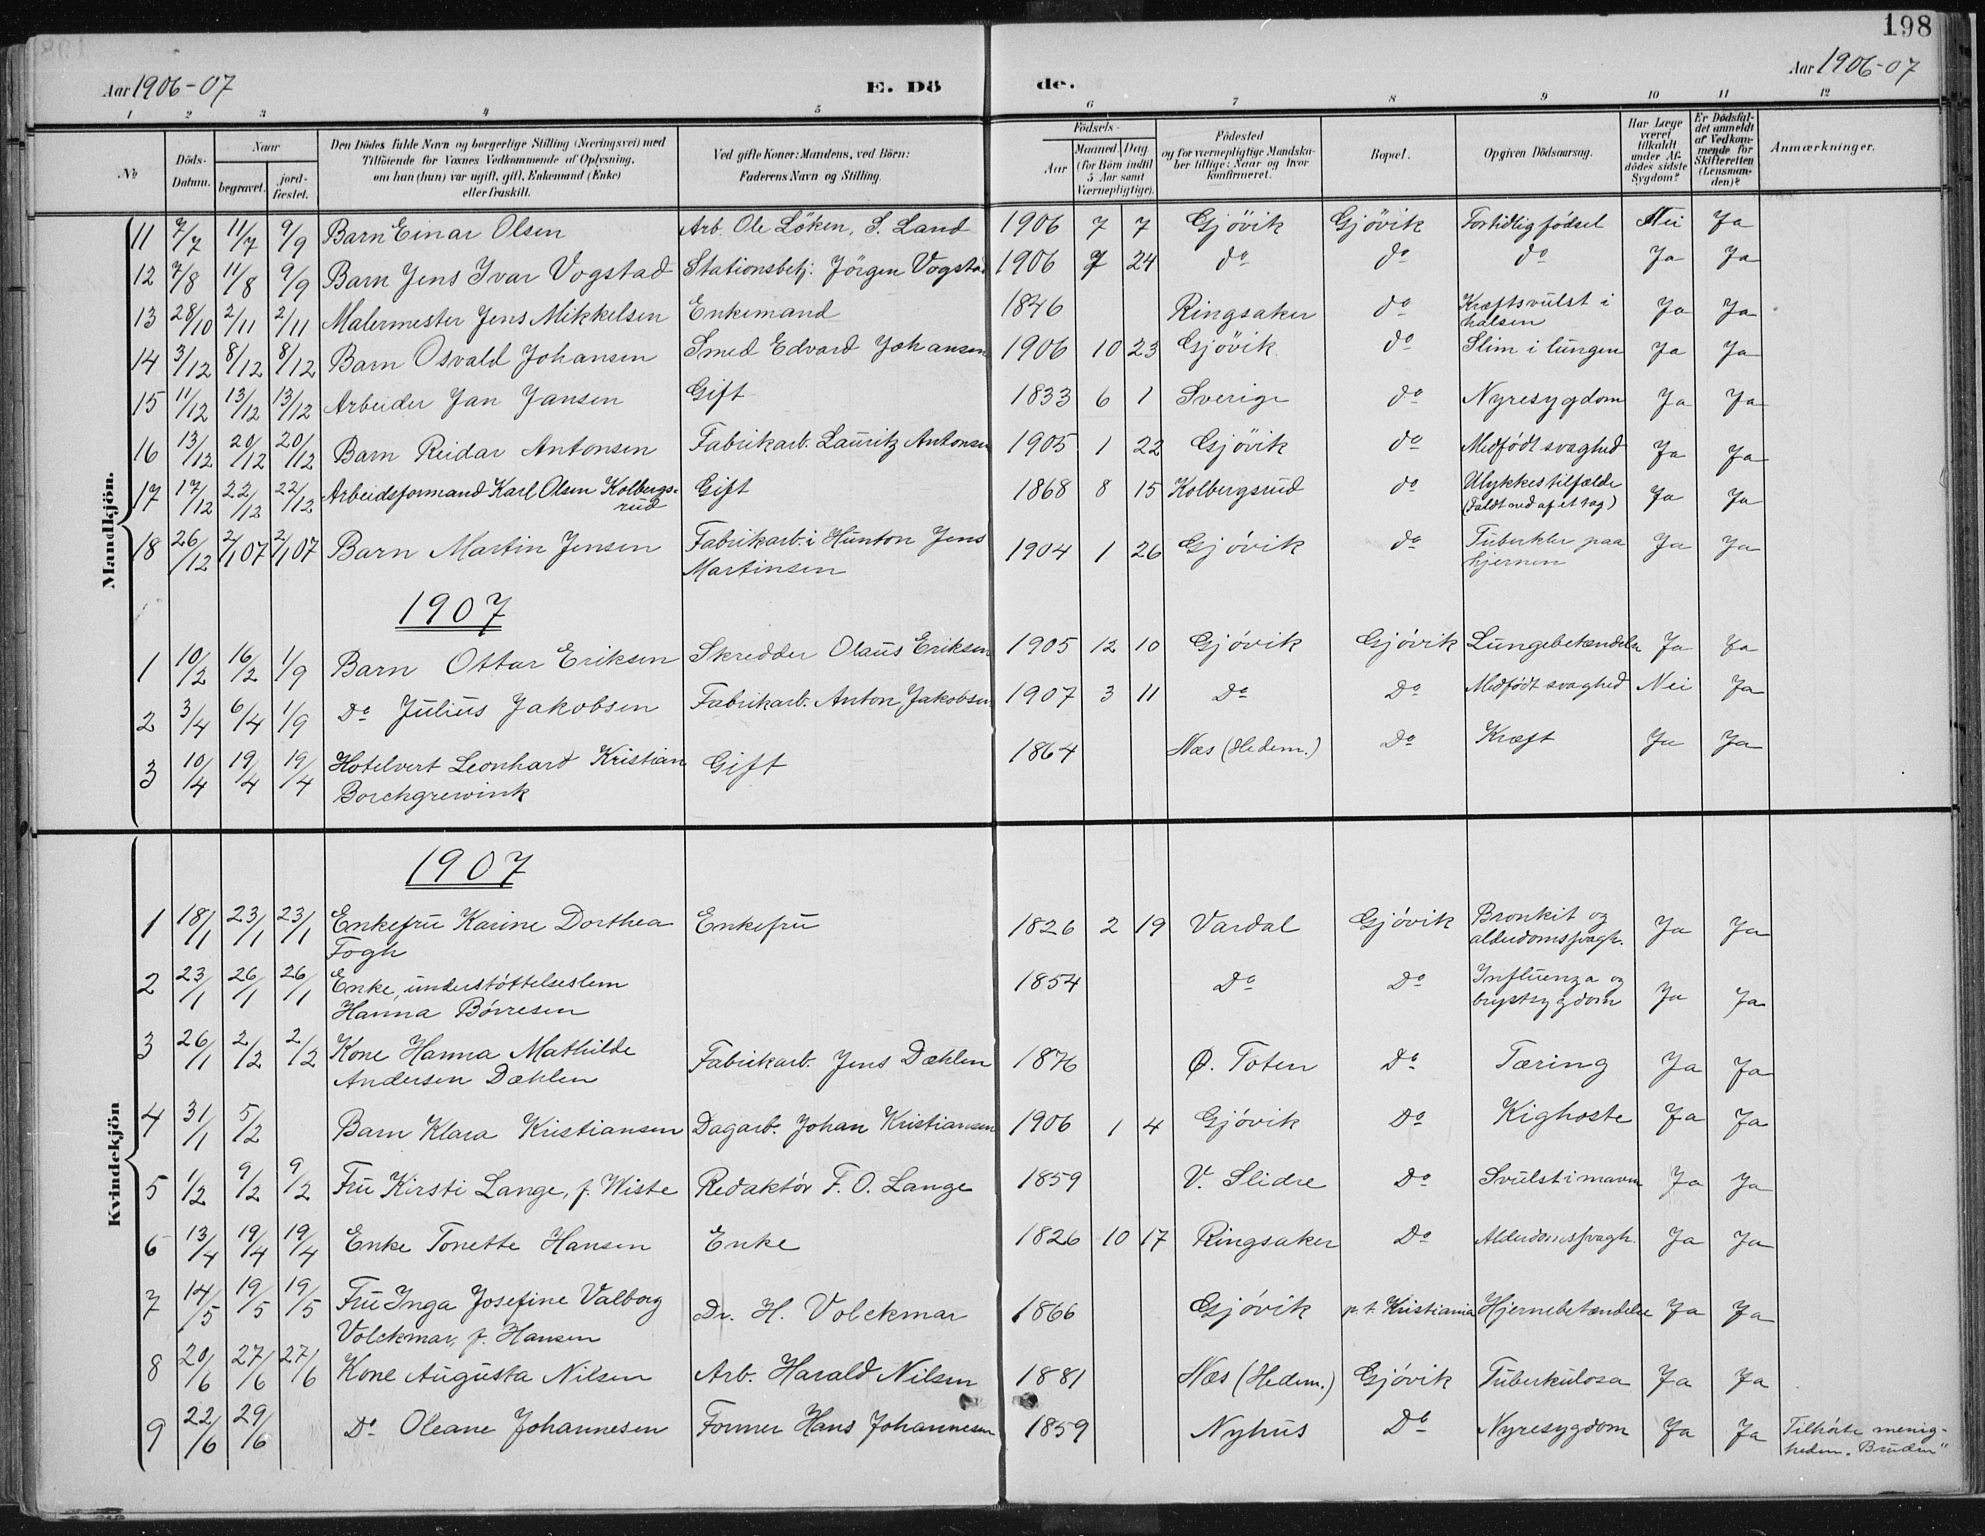 198
Aar 1906-07 E. Dö de. Aar 1906-07
1 2 3 4 5 6 7 8 9 10 11 12
No. Döds-Datum. Naar begravet. jordfæstet. Den Dödes fulde Navn og borgerlige Stilling (Næringsvei) med Tilföiende for Voxnes Vedkommende af Oplysning, om han (hun) var ugift, gift, Enkemand (Enke) eller fraskilt. Ved gifte Koner: Mandens, ved Börn: Faderens Navn og Stilling. Födsels- Aar Maaned. Dag. (for Börn indtil 5 Aar samt Værnepligtige). Födested og for værnepligtige Mandskaber tillige: Naar og hvor konfirmeret. Bopæl. Opgiven Dödsaarsag. Har Læge været tilkaldt under Afdödes sidste Sygdom? Er Dödsfaldet anmeldt af Vedkommende for Skifteretten (Lensmanden)? Anmærkninger.
Mandkjön.
11 7/7 11/7 9/9 Barn Einar Olsen Arb. Ole Löken, S. Land 1906 7 7 Gjövik Gjövik Fortidlig födsel Nei Ja
12 7/8 11/8 9/9 Barn Jens Ivar Vogstad Stationsbetj. Jörgen Vogstad 1906 7 24 do do do Ja Ja
13 28/10 2/11 2/11 Malermester Jens Mikkelsen Enkemand 1846 Ringsaker do Kræftsvulst i Ja Ja
halsen
14 3/12 8/12 8/12 Barn Osvald Johansen Smed Edvard Johansen 1906 10 23 Gjövik do Slim i lungen Ja Ja
15 11/12 13/12 13/12 Arbeider Jan Jansen Gift 1833 6 1 Sverige do Nyresygdom Ja Ja
16 13/12 20/12 20/12 Barn Reidar Antonsen Fabrikarb. Lauritz Antonsen 1905 1 22 Gjövik do Medfödt svaghed Ja Ja
17 17/12 22/12 22/12 Arbeidsformand Karl Olsen Kolbergs- Gift 1868 8 15 Kolbergsrud do Ulykkestilfælde Ja Ja
rud (Faldt ned af et tag)
18 26/12 2/1 07 2/1 07 Barn Martin Jensen Fabrikarb. i Hunton Jens 1904 1 26 Gjövik do Tuberkler paa Ja Ja
Martinsen hjernen
1907
1 10/2 16/2 1/9 Barn Ottar Eriksen Skredder Olaus Eriksen 1905 12 10 Gjövik Gjövik Lungebetændelse Ja Ja
2 3/4 6/4 1/9 Do Julius Jakobsen Fabrikarb. Anton Jakobsen 1907 3 11 Do Do Medfödt svaghed Nei Ja
3 10/4 19/4 19/4 Hotelvert Leonhard Kristian Gift 1864 Næs (Hedem.) Do Kræft Ja Ja
Borchgrewink
Kvindekjön
1907
1 18/1 23/1 23/1 Enkefru Karine Dorthea Enkefru 1826 2 19 Vardal Gjövik Bronkit og Ja Ja
Fogh alderdomssvagh.
2 23/1 26/1 26/1 Enke, understöttelseslem 1854 Do Do Influenza og Ja Ja
Hanna Börresen brystsygdom
3 26/1 2/2 2/2 Kone Hanna Mathilde Fabrikarb. Jens Dæhlen 1876 Ø. Toten Do Tæring Ja Ja
Andersen Dæhlen
4 31/1 5/2 Barn Klara Kristiansen Dagarb. Johan Kristiansen 1906 1 4 Gjövik Do Kighoste Ja Ja
5 1/2 9/2 9/2 Fru Kirsti Lange, f. Wiste Redaktör F. O. Lange 1859 V. Slidre Do Svulst i maven Ja Ja
6 13/4 19/4 19/4 Enke Tonette Hansen Enke 1826 10 17 Ringsaker Do Alderdomssvagh. Ja Ja
7 14/5 19/5 19/5 Fru Inga Josefine Valborg Dr. H. Volckmar 1866 Gjövik p.t. Kristiania Hjernebetændelse Ja Ja
Volckmar, f. Hansen
8 20/6 27/6 27/6 Kone Augusta Nilsen Arb. Harald Nilsen 1881 Næs (Hedem.) Gjövik Tuberkulosa Ja Ja
9 22/6 29/6 Do Oleane Johannesen Former Hans Johannesen 1859 Nyhus Do Nyresygdom Ja Ja Tilhörte menig-
heden „Bruden"